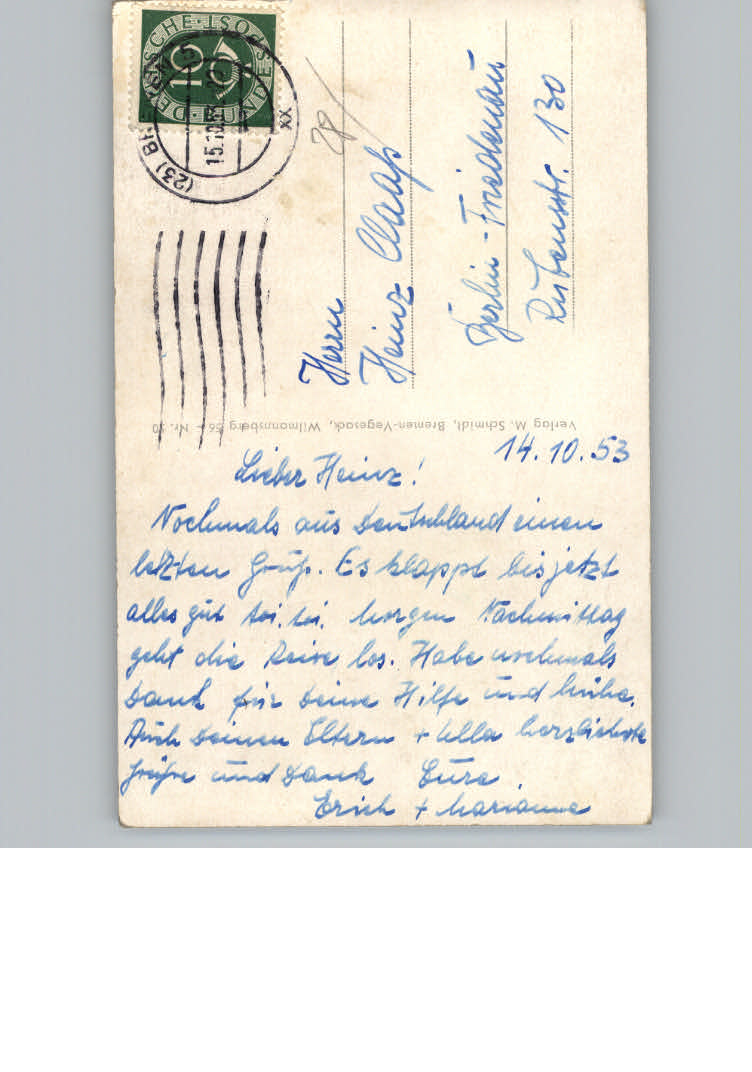 DEUTSCHE BUNDESPOST
10
(23) BREMEN
15.10.53
xx
28
Herrn
Heinz Claaß
Berlin-Friedenau
Rubensstr. 130
Verlag M. Schmidt, Bremen-Vegesack, Wilmannsberg 56 - Nr. 20
14.10.53
Lieber Heinz!
Nochmals aus Deutschland einen
letzten Gruß. Es klappt bis jetzt
alles gut toi. toi. Morgen Nachmittag
geht die Reise los. Habe nochmals
Dank für Deine Hilfe und Mühe.
Auch Deinen Eltern + Ulla herzlichste
Grüße und Dank Eure
Erich + Marianne